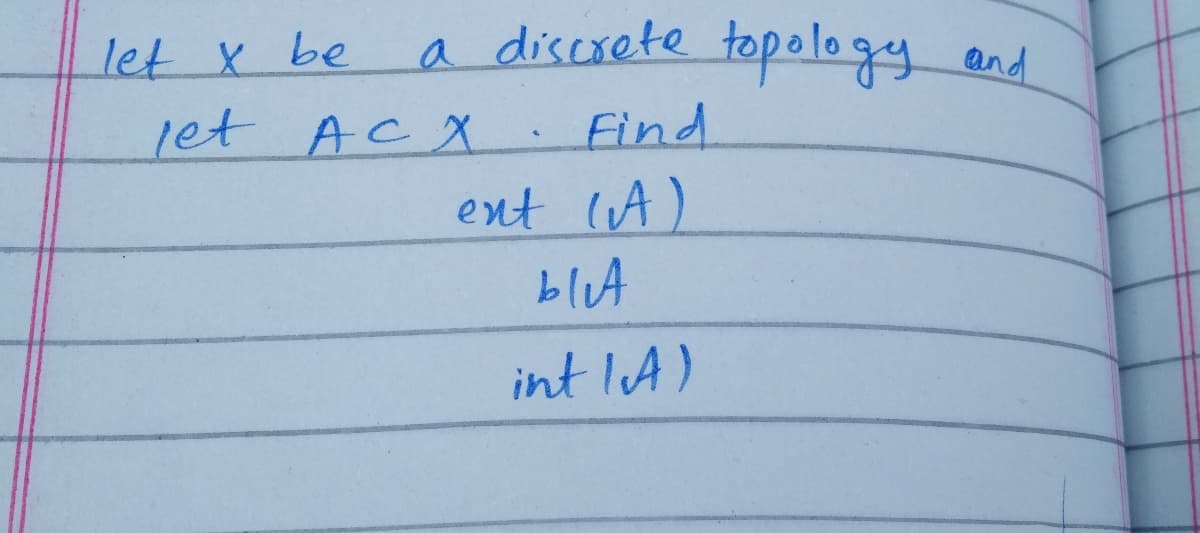 let x be a discrete topology and
let A ⊂ X . Find
ext (A)
b(A
int (A)